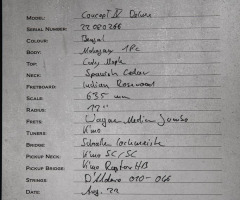 MODEL: Concept IV Deluxe
SERIAL NUMBER: 22080266
COLOUR: Bengal
BODY: Mahogany 1Pc
TOP: Curly Maple
NECK: Spanish Cedar
FRETBOARD: Indian Rosewood
SCALE: 635 mm
RADIUS: 12"
FRETS: Wagner Medium Jumbo
TUNERS: Vimo
BRIDGE: Schaller
PICKUP NECK: Vimo SC/SC
PICKUP BRIDGE: Vimo HB
STRINGS: D'Addario 010-046
DATE: Aug. 22